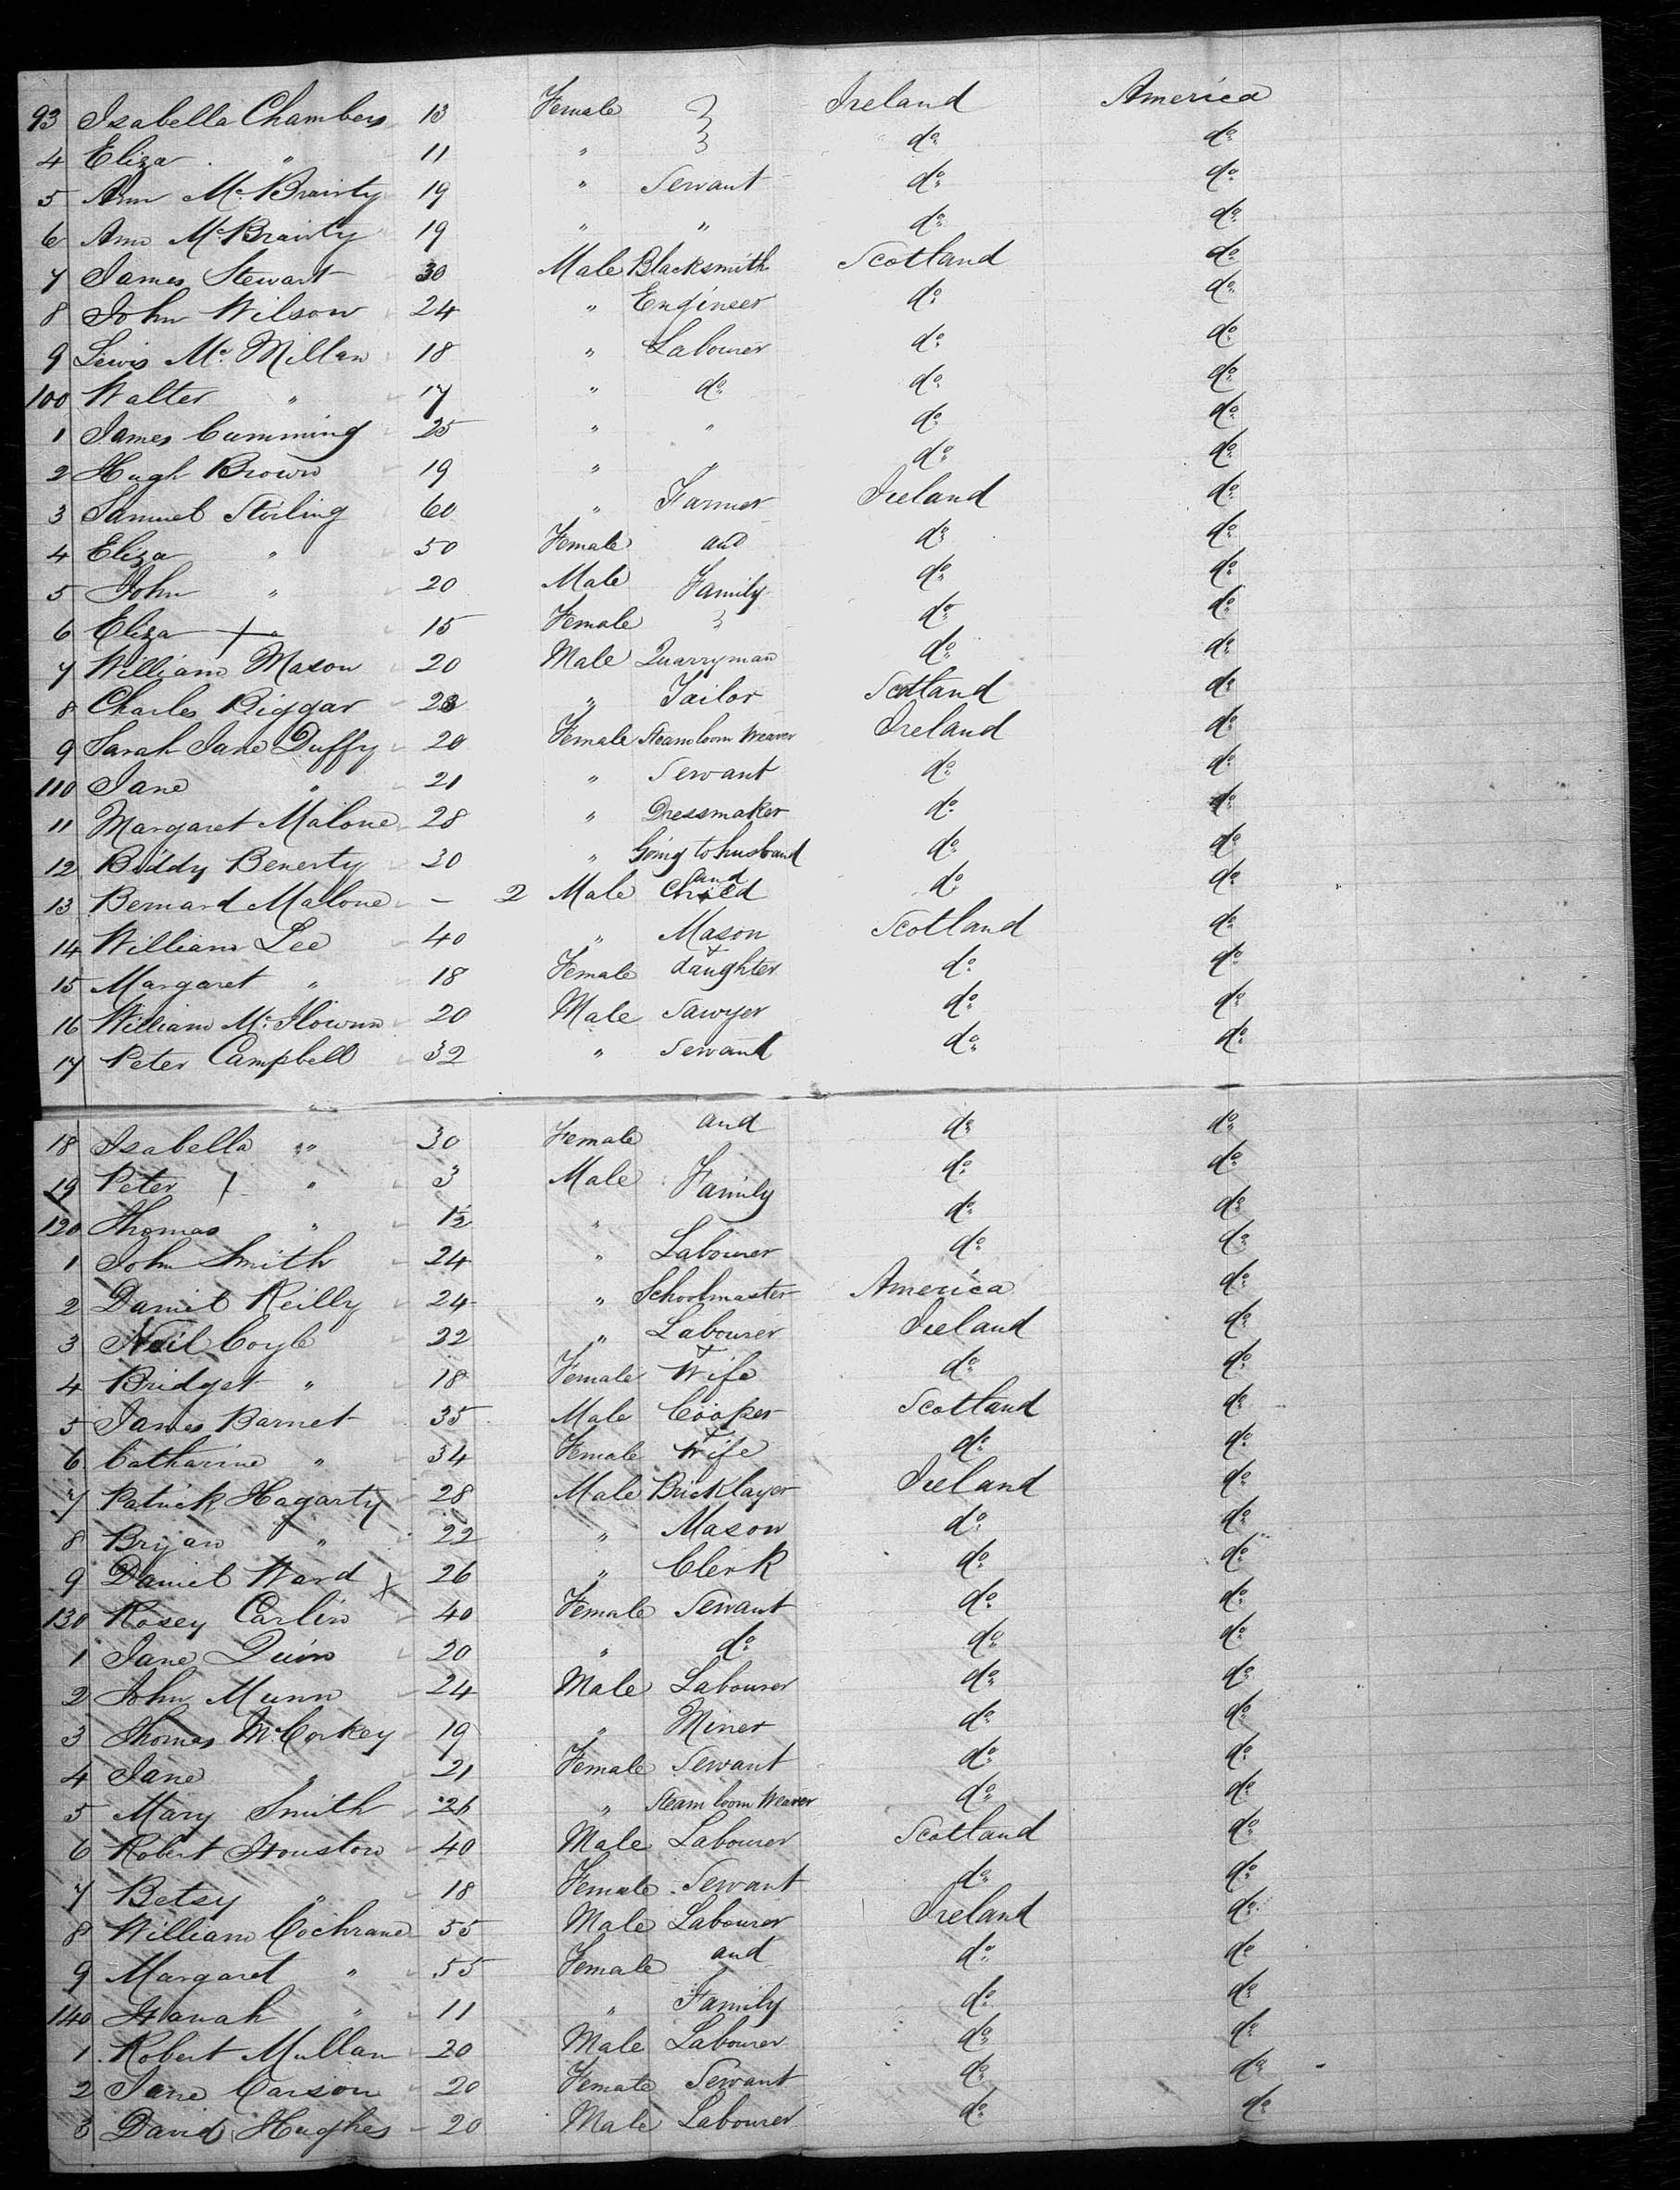 93 Isabella Chambers 13 Female } Ireland America
4 Eliza " 11 " } do do
5 Ann McBrairty 19 " Servant do do
6 Ann McBrairty 19 " " do do
7 James Stewart 30 Male Blacksmith Scotland do
8 John Wilson 24 " Engineer do do
9 Lewis McMillan 18 " Labourer do do
100 Walter " 17 " do do do
1 James Cumming 25 " " do do
2 Hugh Brown 19 " " do do
3 Samuel Stirling 60 " Farmer Ireland do
4 Eliza " 50 Female and do do
5 John " 20 Male Family do do
6 Eliza " 15 Female } do do
7 William Mason 20 Male Quarryman do do
8 Charles Biggar 23 " Tailor Scotland do
9 Sarah Jane Duffy 20 Female Steam loom Weaver Ireland do
110 Jane " 21 " Servant do do
11 Margaret Malone 28 " Dressmaker do do
12 Biddy Benerty 30 " Going to husband do do
13 Bernard Malone - 2 Male and Child do do
14 William Lee 40 " Mason Scotland do
15 Margaret " 18 Female + daughter do do
16 William 20 Male Sawyer do do
17 Peter Campbell 32 " Servant do do
18 Isabella " 30 Female and do do
19 Peter " 3 Male Family do do
120 Thomas " 1½ " do do
1 John Smith 24 " Labourer do do
2 Daniel Reilly 24 " Schoolmaster America do
3 Neil Coyle 22 " Labourer Ireland do
4 Bridget " 18 Female + Wife do do
5 James Barnet 35 Male Cooper Scotland do
6 Catharine " 34 Female + Wife do do
7 Patrick Hagarty 28 Male Bricklayer Ireland do
8 Bryan " 22 " Mason do do
9 Daniel Ward 26 " Clerk do do
130 Rosey Carlin 40 Female Servant do do
1 Jane Quin 20 " do do do
2 John Munn 24 Male Labourer do do
3 Thomas McCorkey 19 " Miner do do
4 Jane " 21 Female Servant do do
5 Mary Smith 26 " Steam loom Weaver do do
6 Robert Houston 40 Male Labourer Scotland do
7 Betsy " 18 Female Servant do do
8 William Cochrane 55 Male Labourer Ireland do
9 Margaret " 55 Female and do do
140 Hanah " 11 " Family do do
1 Robert Mullan 20 Male Labourer do do
2 Jane Carson 20 Female Servant do do
3 David Hughes 20 Male Labourer do do